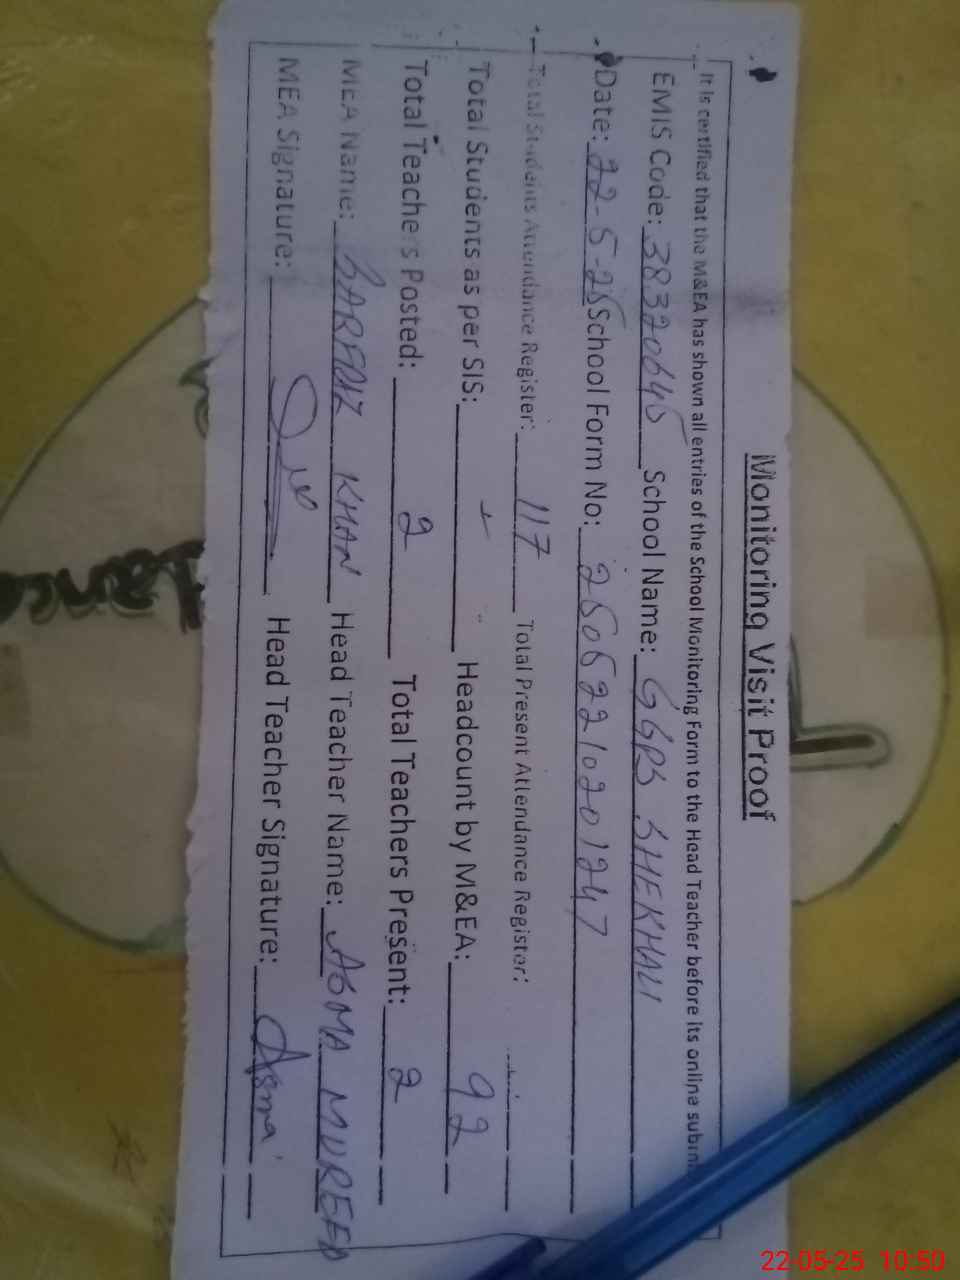 Monitoring Visit Proof
It is certified that the M&EA has shown all entries of the School Monitoring Form to the Head Teacher before its online subm
EMIS Code: 38320645 School Name: GGPS SHEKHALI
Date: 22-5-25 School Form No: 25052210201247
Total Students Attendance Register: 117 Total Present Attendance Register:
Total Students as per SIS: Headcount by M&EA: 92
Total Teachers Posted: 2 Total Teachers Present: 2
MEA Name: SARFRAZ KHAN Head Teacher Name: ASMA MUREED
MEA Signature: Head Teacher Signature: Asma
22-05-25 10:50